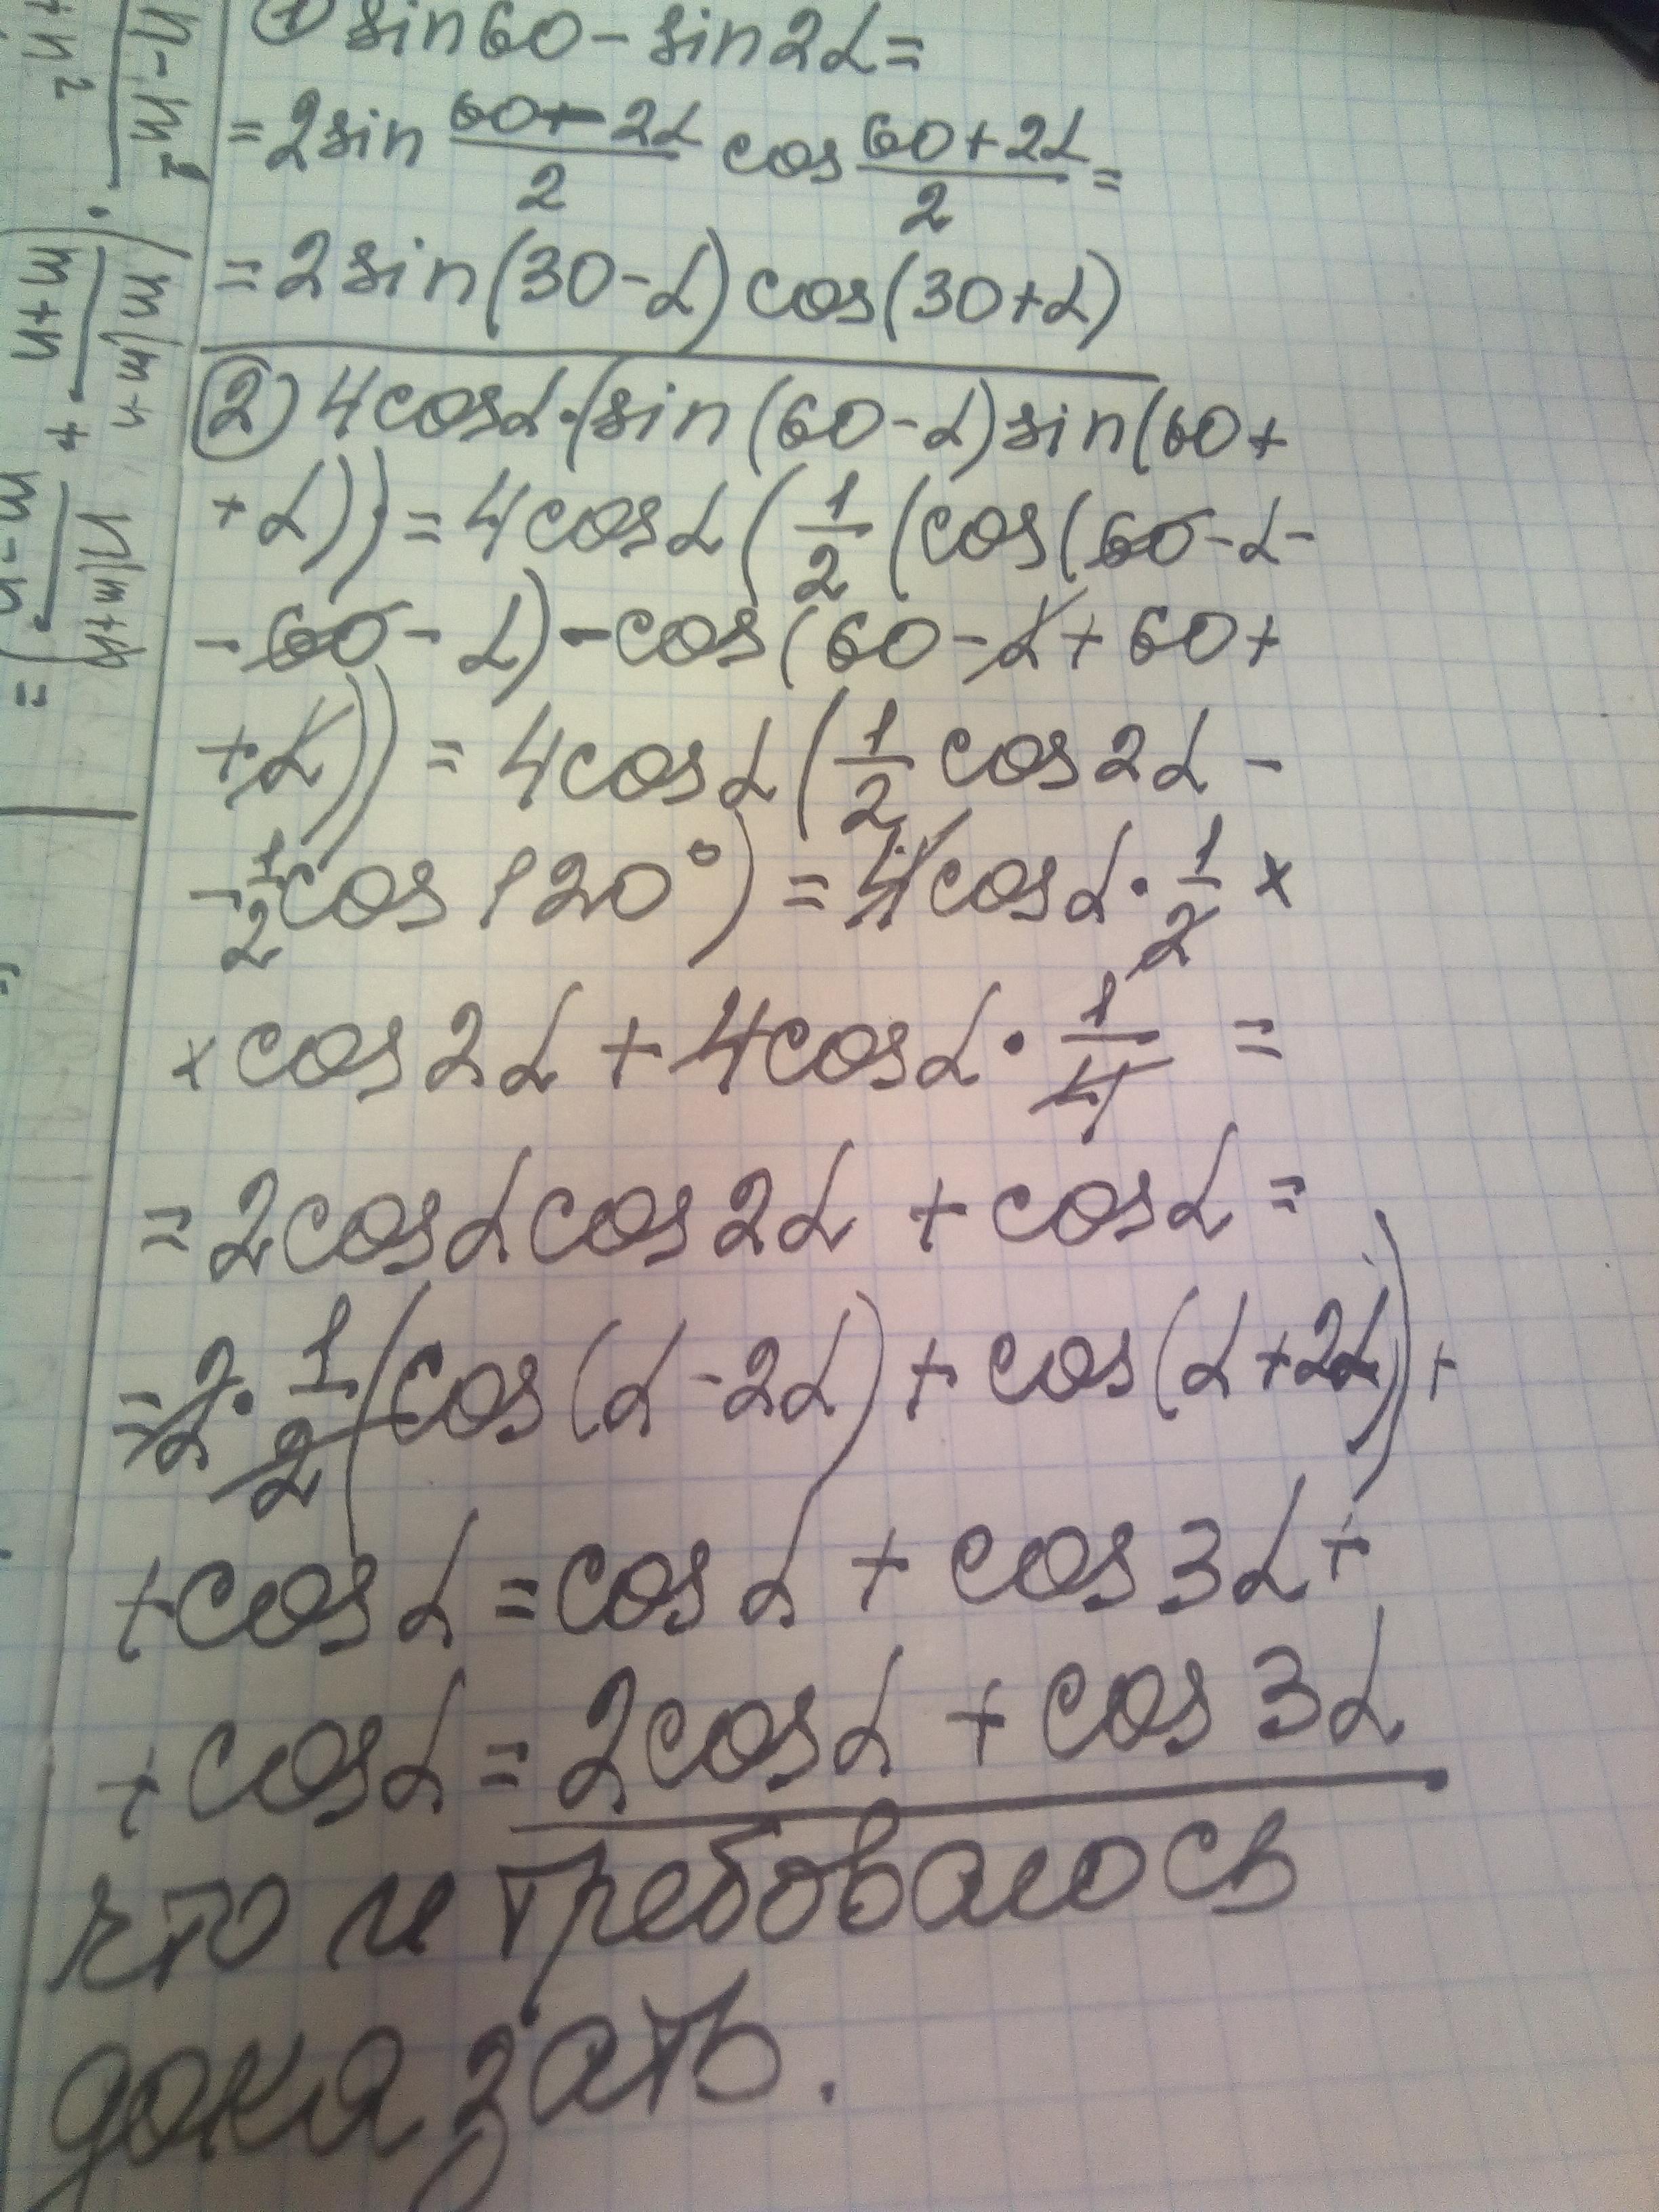 1) sin60 - sin2α =
= 2sin (60 - 2α)/2 cos (60 + 2α)/2 =
= 2sin(30 - α) cos(30 + α)
2) 4cosα · (sin(60 - α) sin(60 +
+ α)) = 4cosα (1/2 (cos(60 - α -
- 60 - α) - cos(60 - α + 60 +
+ α)) = 4cosα (1/2 cos2α -
- 1/2 cos 120°) = 4cosα · 1/2 ×
× cos2α + 4cosα · 1/4 =
= 2cosα cos2α + cosα =
= 2 · 1/2 (cos(α - 2α) + cos(α + 2α)) +
+ cosα = cosα + cos3α +
+ cosα = 2cosα + cos3α
что и требовалось
доказать.